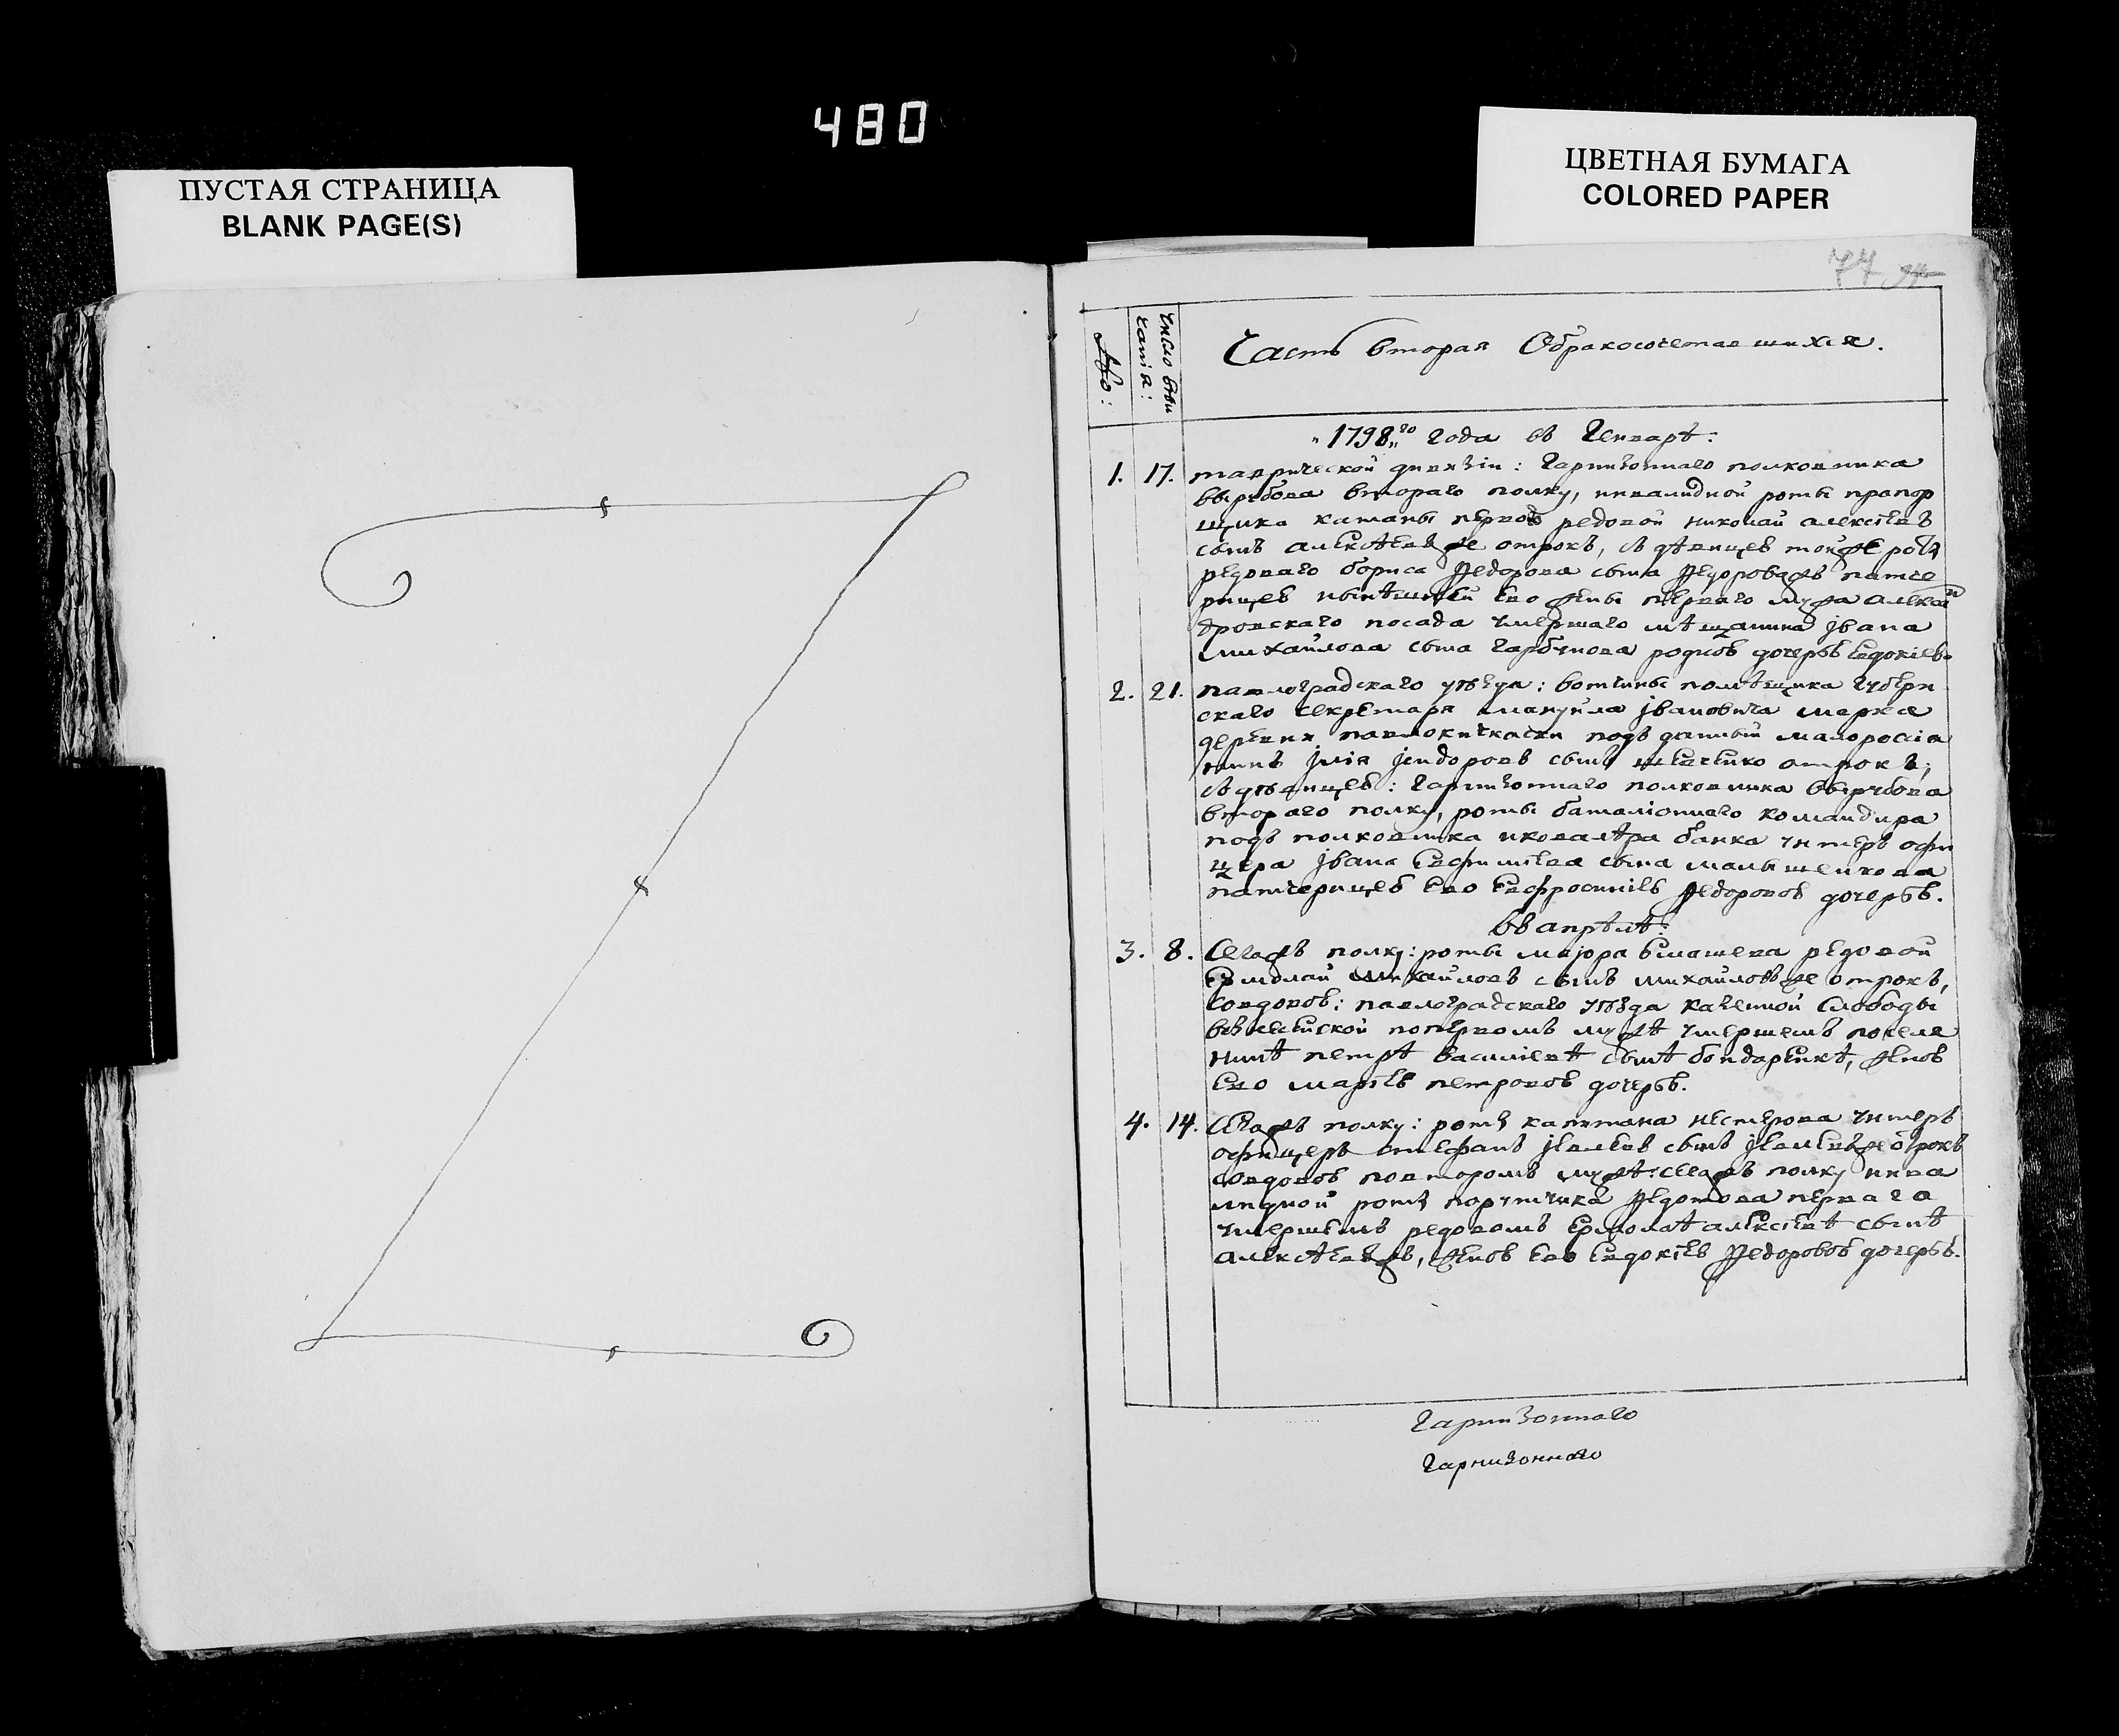 480
ПУСТАЯ СТРАНИЦА
BLANK PAGE(S)
ЦВЕТНАЯ БУМАГА
COLORED PAPER
77
Число вѣн
чанія:
Часть вторая Обракосочетавшихся.
"1798"го Года въ Генварѣ:
1. 17. таврической дивизіи: Гарнизоннаго полковника
вырубова втораго полку, инвалидной роты прапор
щика катаны первой редовой николай алексѣевъ
сынъ алексѣевъ же отрокъ, съ дѣвицею той же роты
редоваго бориса Ѳедорова сына Ѳедорова жъ патче
рицею нынѣшней ево жены перваго мужа алексан
дровскаго посада умершаго мѣщанина јвана
михайлова сына Гарбунова родною дочерью Евдокіею.
2. 21. павлоградскаго уѣзда: вотчины помѣщика Губерн
скаго секретаря мануйла јвановича марка
деревни павлокичкаски подъданный малоросія
нинъ јлія јсидоровъ сынъ шевченко отрокъ;
съ дѣвицею: Гарнизоннаго полковника вырубова
втораго полку, роты баталіоннаго командира
подъ полковника и ковалѣра банка унтеръ офи
цера јвана Евфиміева сына малышенкова
патчерицею Ево Евфросиніею Ѳедоровою дочерью.
въ апрѣлѣ:
3. 8. Сегожъ полку: роты маіора Елашева редовой
Ермолай михайловъ сынъ михайловъ же отрокъ,
совдовою: павлоградскаго уѣзда казенной Слободы
вознесенской попервомъ мужѣ умершемъ поселя
нинѣ петрѣ василіевѣ сынѣ бондаренкѣ, женою
Ево маріею петровою дочерью.
4. 14. Сегожъ полку: роты капитана нестерова унтеръ
офицеръ стефанъ јевлевъ сынъ јевлевъ же отрокъ
совдовою повторомъ мужѣ: сегожъ полку инва
лидной роты порутчика Ѳедотова перваго
умершемъ редовомъ Ермолаѣ алексіевѣ сынѣ
алексѣевѣ жъ, женою Ево Евдокіею Ѳедоровою дочерью.
Гарнизоннаго
Гарнизоннаго